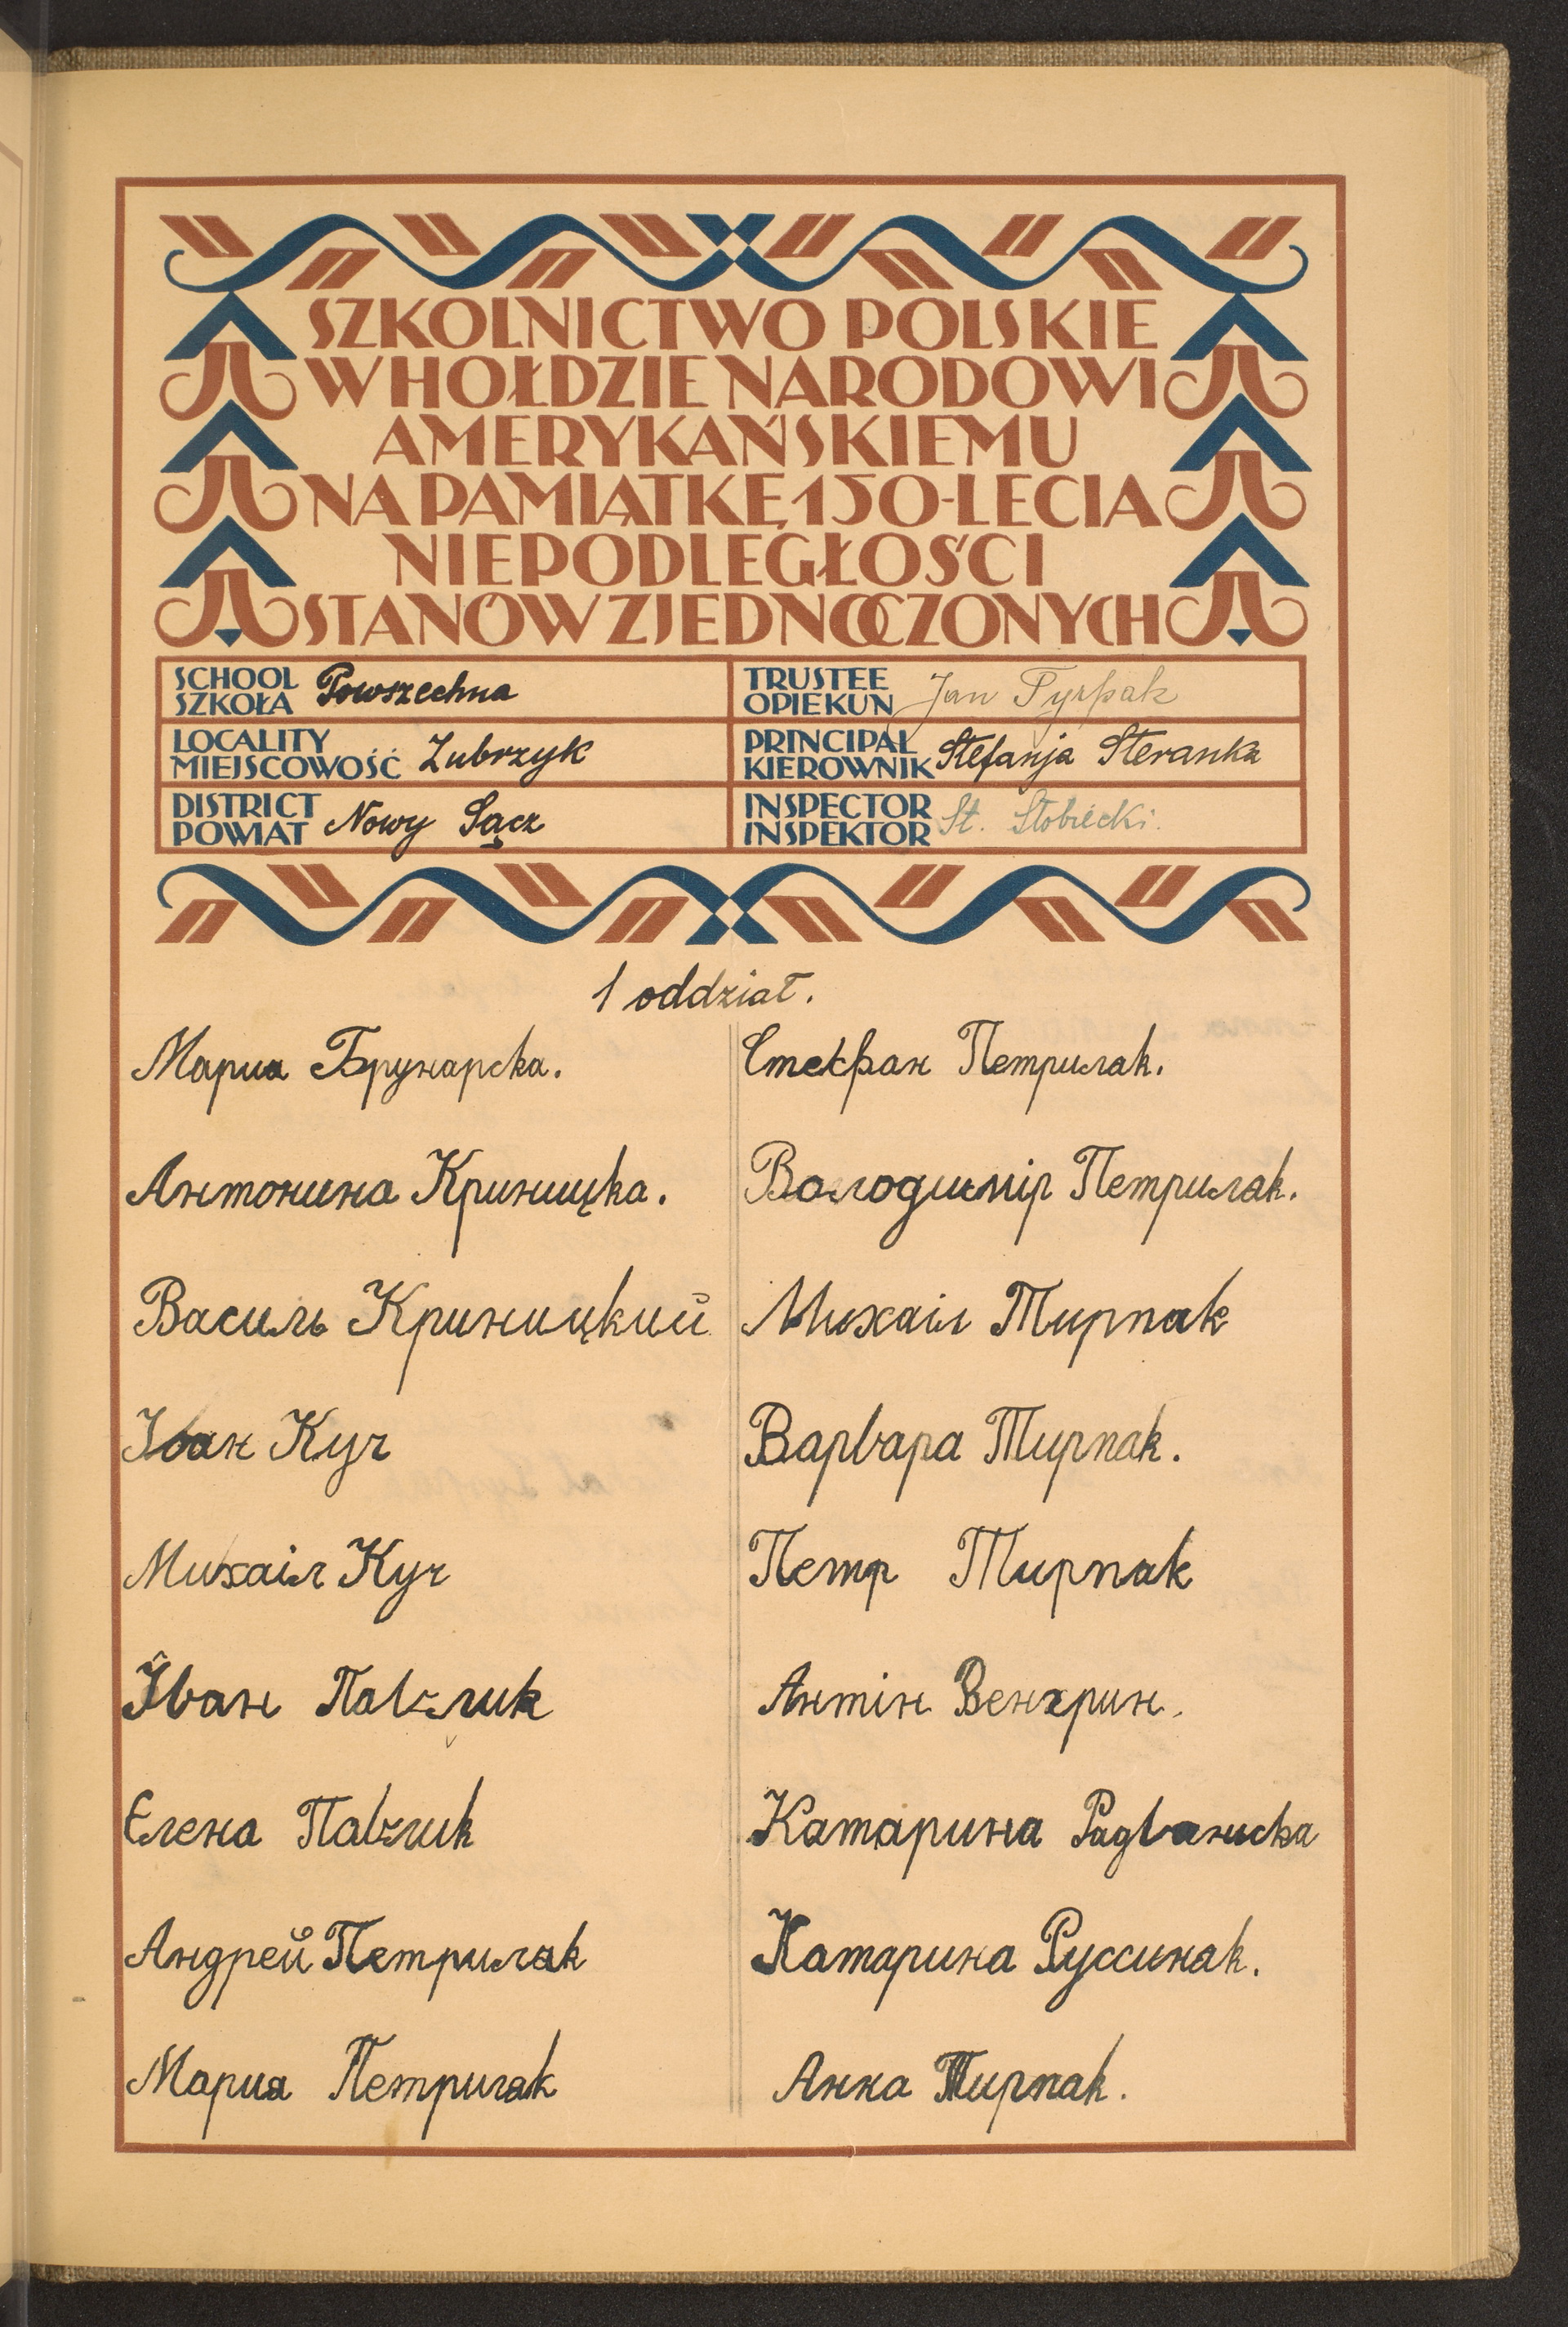 SZKOLNICTWO POLSKIE
W HOŁDZIE NARODOWI
AMERYKAŃSKIEMU
NA PAMIĄTKĘ 150-LECIA
NIEPODLEGŁOŚCI
STANÓW ZJEDNOCZONYCH
SCHOOL
SZKOŁA Powszechna
TRUSTEE
OPIEKUN Jan Tyrpak
LOCALITY
MIEJSCOWOŚĆ Zubrzyk
PRINCIPAL
KIEROWNIK Stefanja Steranka
DISTRICT
POWIAT Nowy Sącz
INSPECTOR
INSPEKTOR St. Słobiecki.
1 oddział.
Мариа Брунарска.
Антонина Криницка.
Василь Криницкий
Іван Куч
Михаіл Куч
Іван Павлик
Єлена Павлик
Андрей Петрилак
Мария Петрилак
Стефан Петрилак.
Володимір Петрилак.
Михаіл Тирпак
Варвара Тирпак.
Петр Тирпак
Антін Венгрин.
Катарина Радваниска
Катарина Руссинак.
Анна Тирпак.